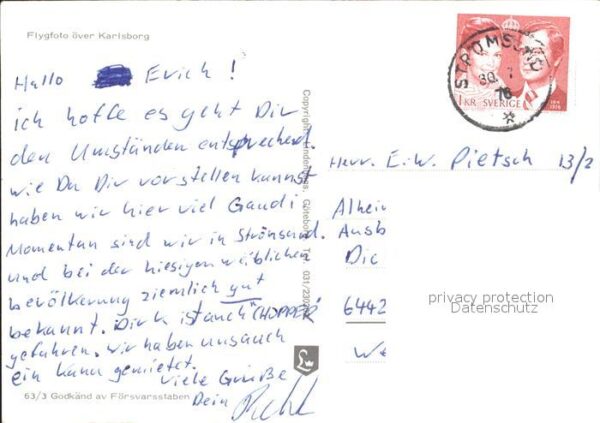 Flygfoto över Karlsborg
Hallo Erich !
ich hoffe es geht Dir
den Umständen entsprechend.
wie Du Dir vorstellen kannst
haben wir hier viel Gaudi
Momentan sind wir in Strömsund.
und bei der hiesigen weiblichen
bevölkerung ziemlich gut
bekannt. Dirk ist auch "CHOPPER"
gefahren. Wir haben uns auch
ein Kanu gemietet.
Viele Grüße
Dein
63/3 Godkänd av Försvarsstaben
Göteborg
STRÖMSUND
30. 7
76
1 KR SVERIGE
Herr. E.W. Pietsch 13/2
Alhei
Ausb
Die
6442
We
privacy protection
Datenschutz